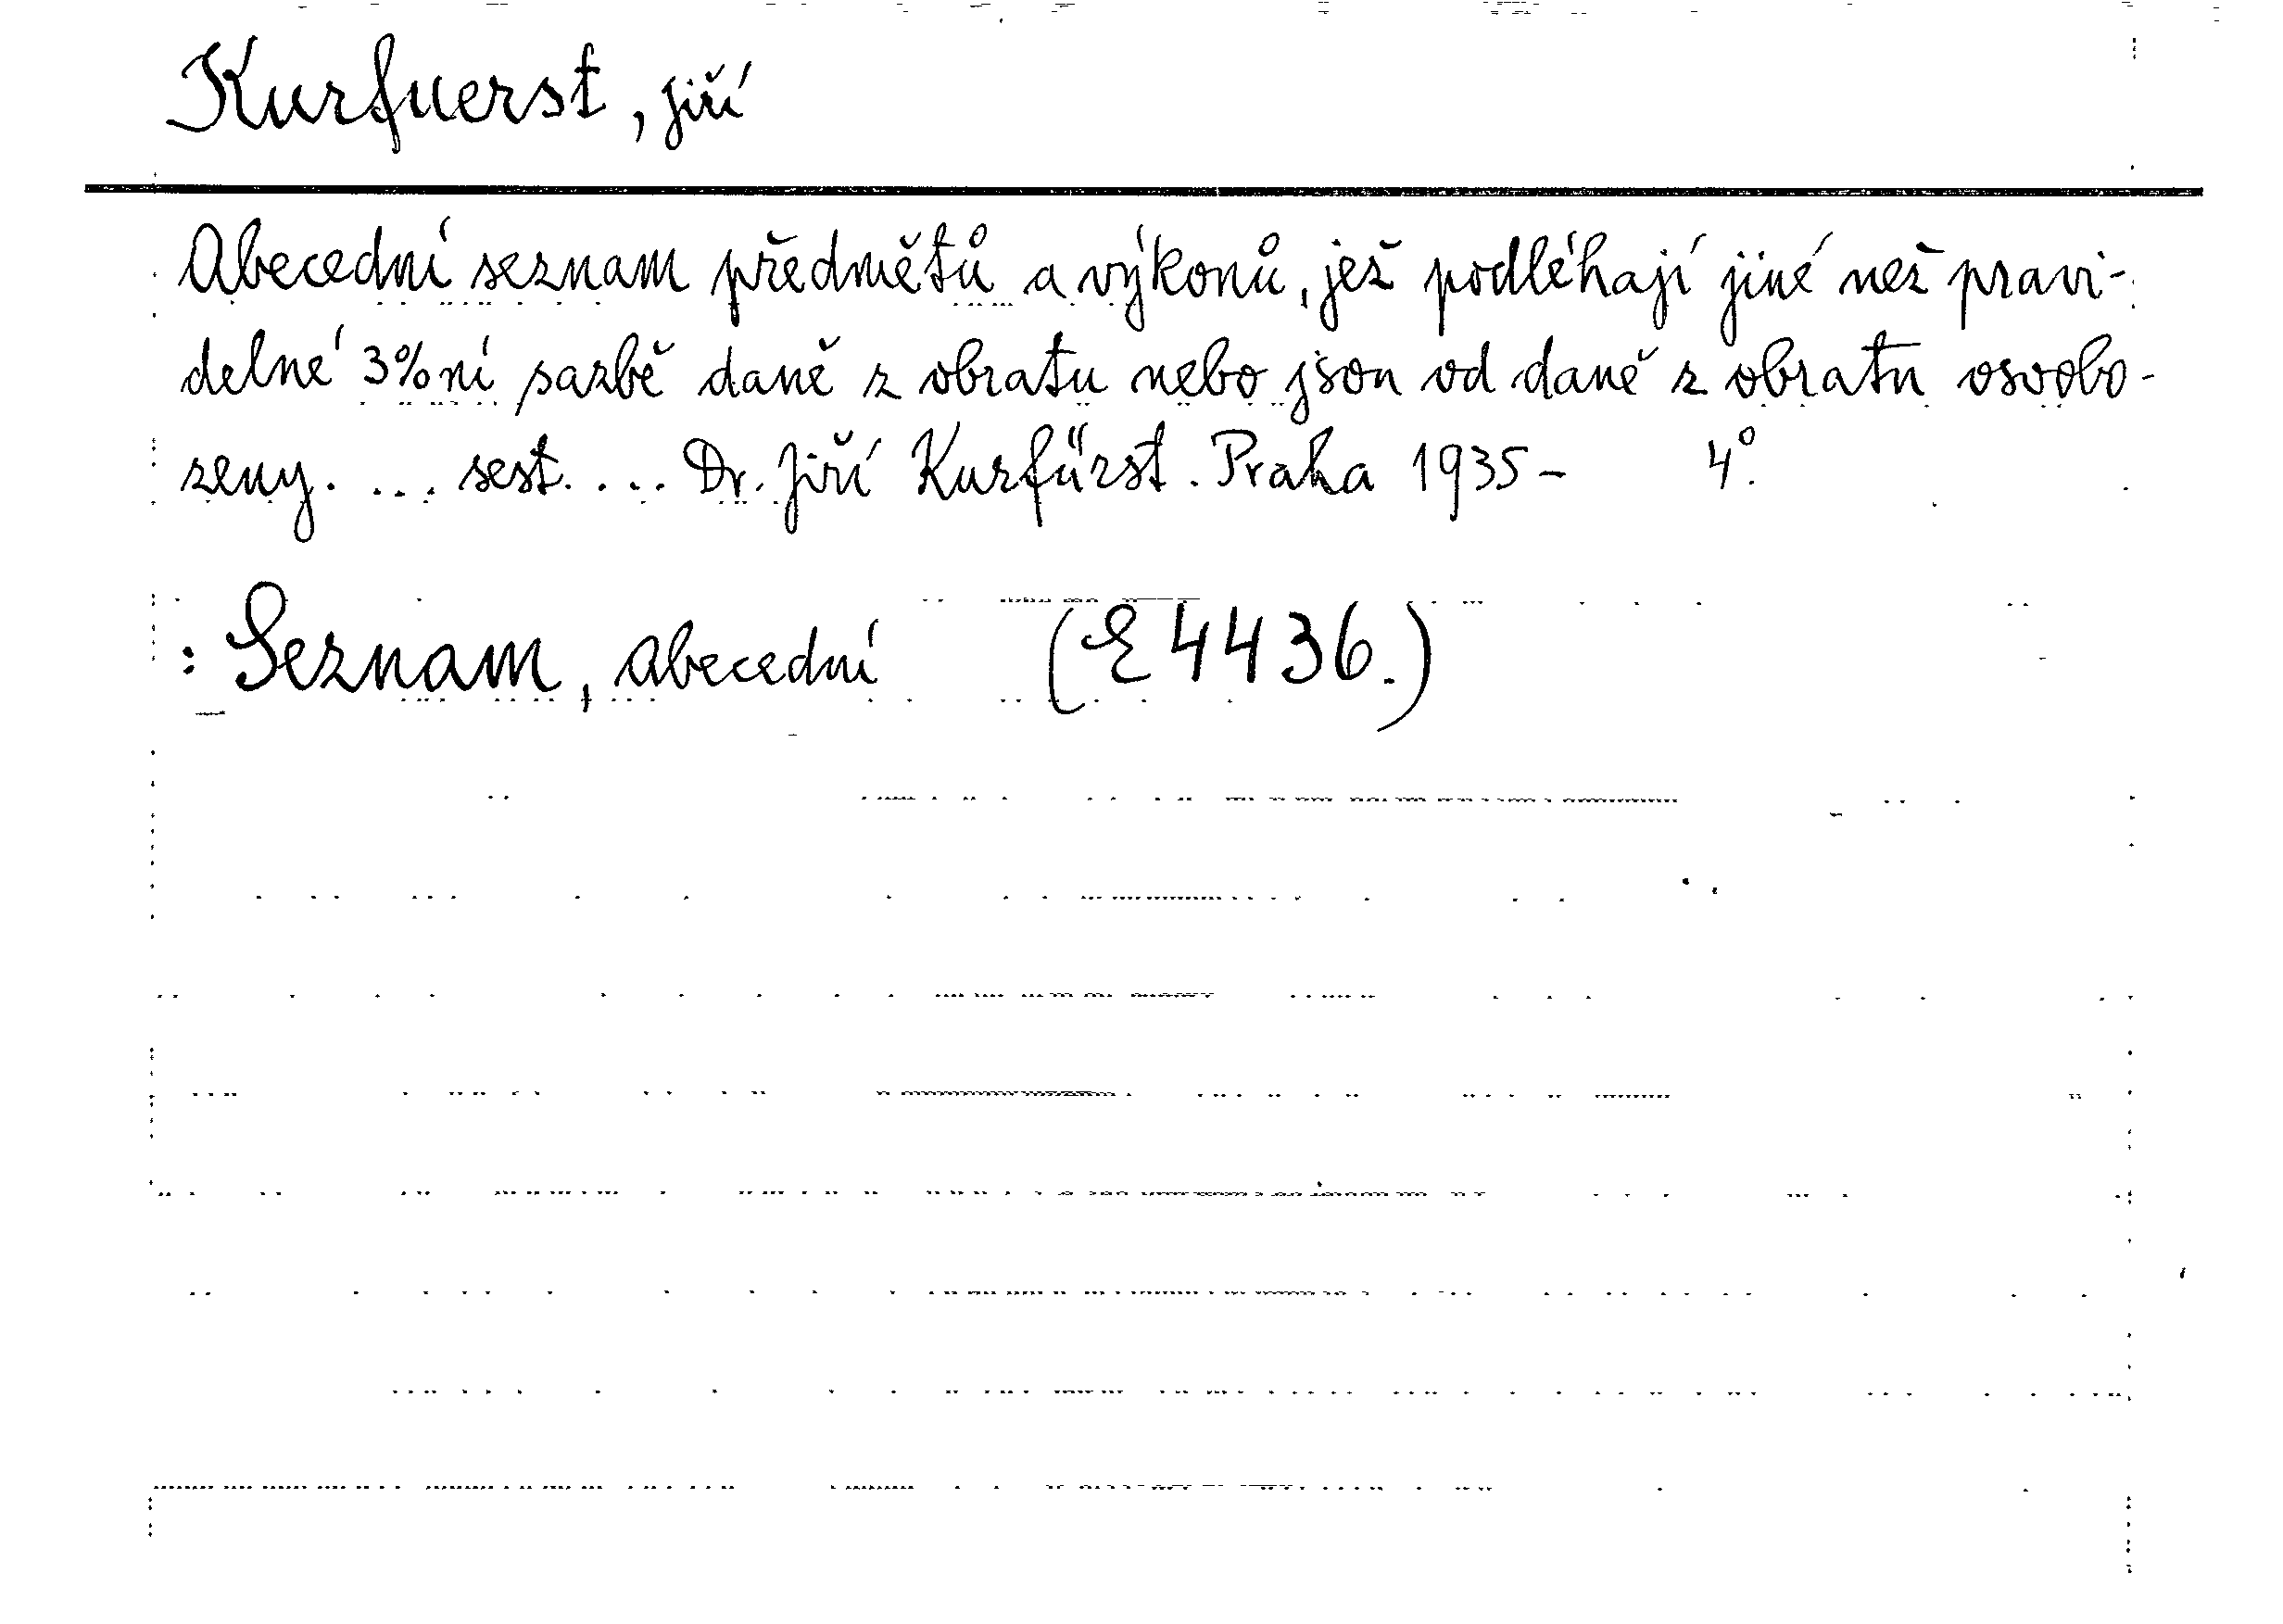 Kurfuerst, Jiří
Abecední seznam předmětů a výkonů, jež podléhají jiné než pravi-
delné 3%ní sazbě daně z obratu nebo jsou od daně z obratu osvobo-
zeny. ... sest. ... Dr. Jiří Kurfürst. Praha 1935- 4°.
: Seznam, abecední (E 4436.)